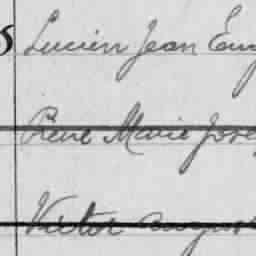 Lucien Jean Eug
Pierre Marie Jose
Victor August